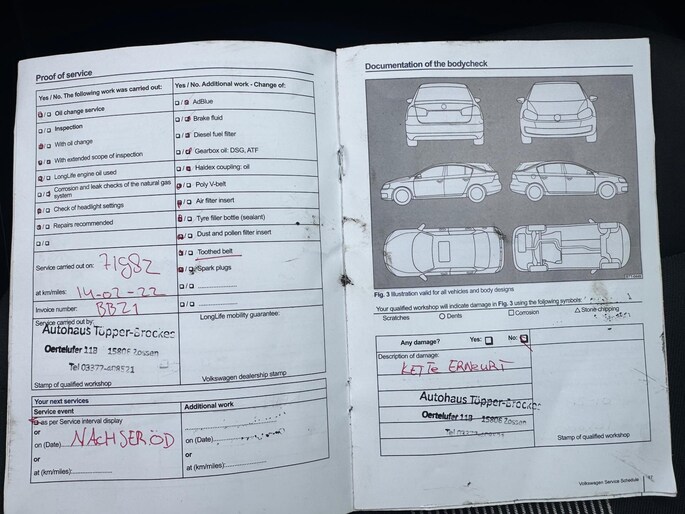 Proof of service
Yes / No. The following work was carried out:
Yes / No. Additional work - Change of:
Oil change service
Inspection
With oil change
With extended scope of inspection
LongLife engine oil used
Corrosion and leak checks of the natural gas
system
Check of headlight settings
Repairs recommended
AdBlue
Brake fluid
Diesel fuel filter
Gearbox oil: DSG, ATF
Haldex coupling: oil
Poly V-belt
Air filter insert
Tyre filler bottle (sealant)
Dust and pollen filter insert
Toothed belt
Spark plugs
Service carried out on: 71982
at km/miles: 14-02-22
Invoice number: BBZ1
Service carried out by:
Autohaus Töpper-Brocker
Oertelufer 11B 15806 Zossen
Tel 03377-408521
Stamp of qualified workshop
LongLife mobility guarantee:
Volkswagen dealership stamp
Your next services
Service event
as per Service interval display
or
on (Date) NACH SERÖD
or
at (km/miles):
Additional work
on (Date)
or
at (km/miles):
Documentation of the bodycheck
Fig. 3 Illustration valid for all vehicles and body designs
Your qualified workshop will indicate damage in Fig. 3 using the following symbols:
Scratches
O Dents
□ Corrosion
△ Stone chipping
Any damage? Yes: No:
Description of damage:
KETTE ERNEURT
Autohaus Töpper-Brocker
Oertelufer 11B 15806 Zossen
Stamp of qualified workshop
Volkswagen Service Schedule